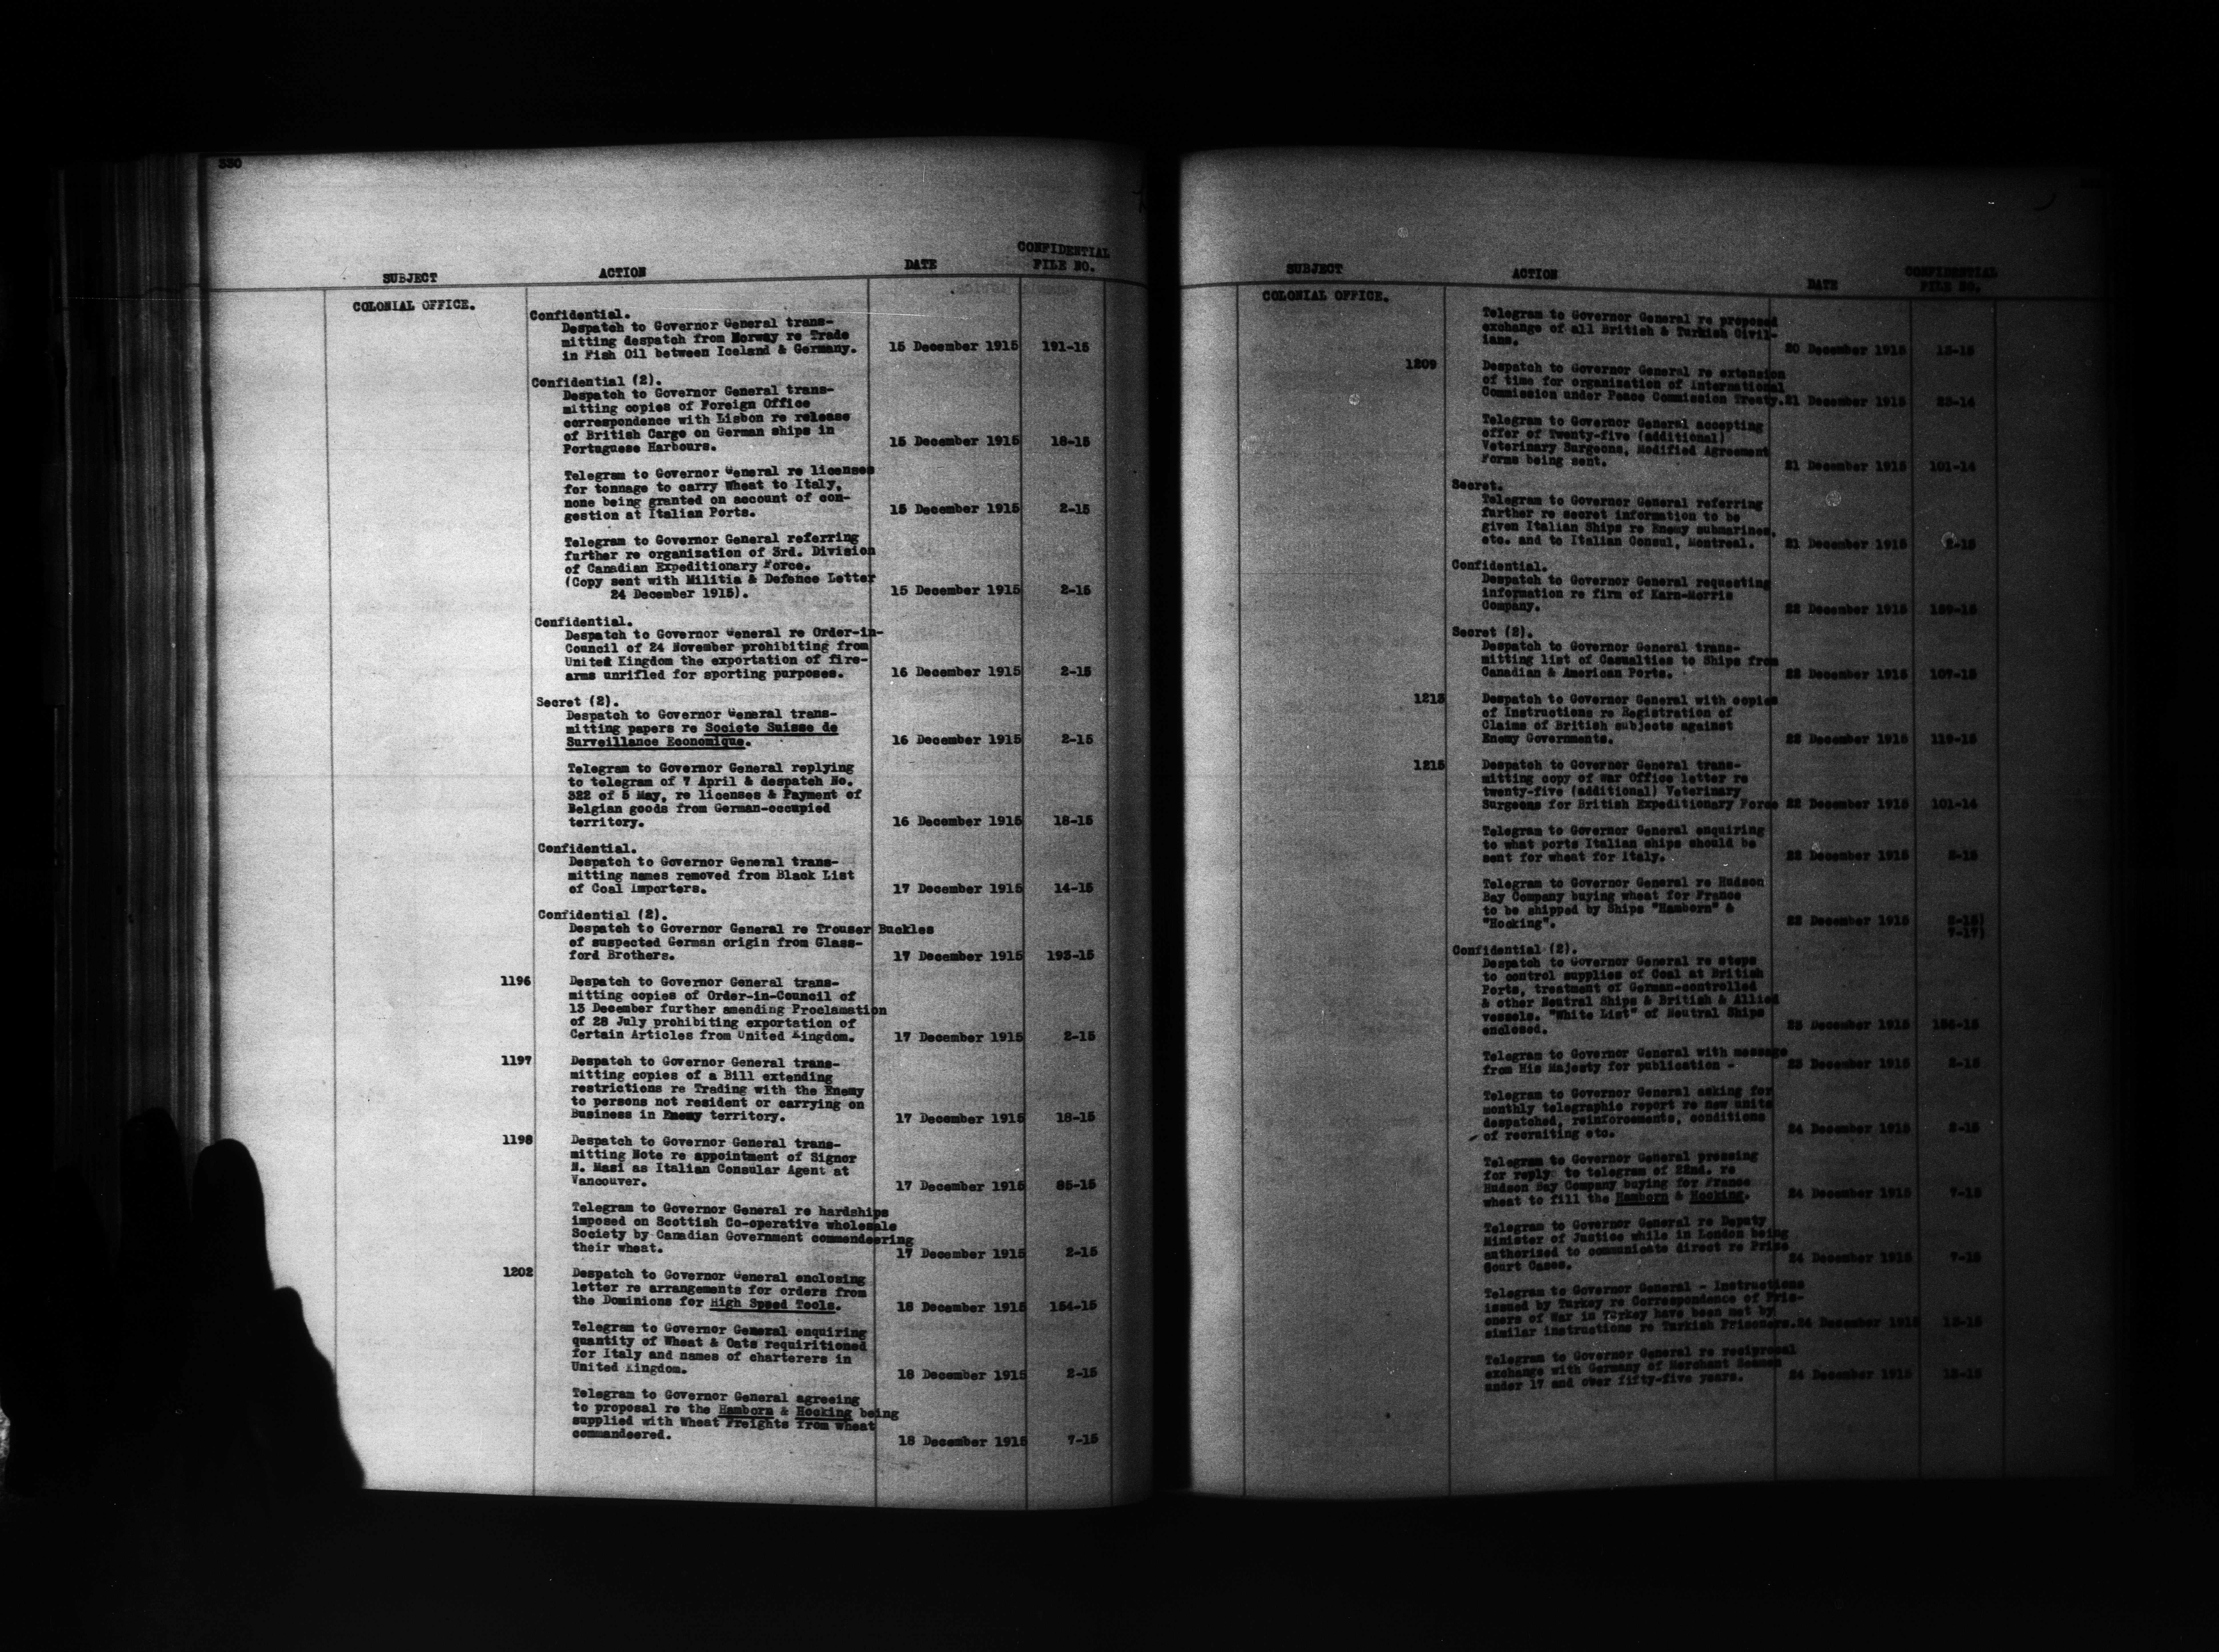 330
SUBJECT ACTION DATE CONFIDENTIAL FILE NO.
COLONIAL OFFICE.
Confidential.
Despatch to Governor General trans-
mitting despatch from Norway re Trade
in Fish Oil between Iceland & Germany. 15 December 1915 191-15
Confidential (2).
Despatch to Governor General trans-
mitting copies of Foreign Office
correspondence with Lisbon re release
of British Cargo on German ships in
Portuguese Harbours. 15 December 1915 18-15
Telegram to Governor General re licenses
for tonnage to carry Wheat to Italy,
none being granted on account of con-
gestion at Italian Ports. 15 December 1915 2-15
Telegram to Governor General referring
further re organization of 3rd. Division
of Canadian Expeditionary Force.
(Copy sent with Militia & Defence Letter
24 December 1915). 15 December 1915 2-15
Confidential.
Despatch to Governor General re Order-in-
Council of 24 November prohibiting from
United Kingdom the exportation of fire-
arms unrifled for sporting purposes. 16 December 1915 2-15
Secret (2).
Despatch to Governor General trans-
mitting papers re Societe Suisse de
Surveillance Economique. 16 December 1915 2-15
Telegram to Governor General replying
to telegram of 7 April & despatch No.
322 of 5 May, re licenses & Payment of
Belgian goods from German-occupied
territory. 16 December 1915 18-15
Confidential.
Despatch to Governor General trans-
mitting names removed from Black List
of Coal Importers. 17 December 1915 14-15
Confidential (2).
Despatch to Governor General re Trouser Buckles
of suspected German origin from Glass-
ford Brothers. 17 December 1915 193-15
1196 Despatch to Governor General trans-
mitting copies of Order-in-Council of
13 December further amending Proclamation
of 28 July prohibiting exportation of
Certain Articles from United Kingdom. 17 December 1915 2-15
1197 Despatch to Governor General trans-
mitting copies of a Bill extending
restrictions re Trading with the Enemy
to persons not resident or carrying on
Business in Enemy territory. 17 December 1915 18-15
1198 Despatch to Governor General trans-
mitting Note re appointment of Signor
N. Masi as Italian Consular Agent at
Vancouver. 17 December 1915 85-15
Telegram to Governor General re hardships
imposed on Scottish Co-operative wholesale
Society by Canadian Government commendeering
their wheat. 17 December 1915 2-15
1202 Despatch to Governor General enclosing
letter re arrangements for orders from
the Dominions for High Speed Tools. 18 December 1915 154-15
Telegram to Governor General enquiring
quantity of Wheat & Oats requiritioned
for Italy and names of charterers in
United Kingdom. 18 December 1915 2-15
Telegram to Governor General agreeing
to proposal re the Hamborn & Hocking being
supplied with Wheat Freights from wheat
commandeered. 18 December 1915 7-15
SUBJECT ACTION DATE CONFIDENTIAL FILE NO.
COLONIAL OFFICE.
Telegram to Governor General re proposed
exchange of all British & Turkish Civil-
ians. 20 December 1915 13-15
1209 Despatch to Governor General re extension
of time for organization of International
Commission under Peace Commission Treaty. 21 December 1915 23-14
Telegram to Governor General accepting
offer of Twenty-five (additional)
Veterinary Surgeons, Modified Agreement
Forms being sent. 21 December 1915 101-14
Secret.
Telegram to Governor General referring
further re secret information to be
given Italian Ships re Enemy submarines,
etc. and to Italian Consul, Montreal. 21 December 1915 2-15
Confidential.
Despatch to Governor General requesting
information re firm of Karn-Morris
Company. 22 December 1915 189-15
Secret (2).
Despatch to Governor General trans-
mitting list of Casualties to Ships from
Canadian & American Ports. 22 December 1915 107-15
1213 Despatch to Governor General with copies
of Instructions re Registration of
Claims of British subjects against
Enemy Governments. 22 December 1915 119-15
1215 Despatch to Governor General trans-
mitting copy of War Office letter re
twenty-five (additional) Veterinary
Surgeons for British Expeditionary Force 22 December 1915 101-14
Telegram to Governor General enquiring
to what ports Italian ships should be
sent for wheat for Italy. 22 December 1915
Telegram to Governor General re Hudson
Bay Company buying wheat for France
to be shipped by Ships "Hamborn" &
"Hocking". 22 December 1915 2-15)
7-17)
Confidential (2).
Despatch to Governor General re steps
to control supplies of Coal at British
Ports, treatment of German-controlled
& other Neutral Ships & British & Allied
vessels. "White List" of Neutral Ships
enclosed. 23 December 1915
Telegram to Governor General with message
from His Majesty for publication - 23 December 1915 2-15
Telegram to Governor General asking for
monthly telegraphic report re new units
despatched, reinforcements, conditions
of recruiting etc. 24 December 1915 2-15
Telegram to Governor General pressing
for reply to telegram of 22nd. re
Hudson Bay Company buying for France
wheat to fill the Hamborn & Hocking. 24 December 1915 7-15
Telegram to Governor General re Deputy
Minister of Justice while in London being
authorised to communicate direct re Prize
Court Cases. 24 December 1915 7-15
Telegram to Governor General - Instructions
issued by Turkey re Correspondence of Pris-
oners of War in Turkey have been met by
similar instructions re Turkish Prisoners. 24 December 1915 13-15
Telegram to Governor General re reciprocal
exchange with Germany of Merchant Seamen
under 17 and over fifty-five years. 24 December 1915 13-15